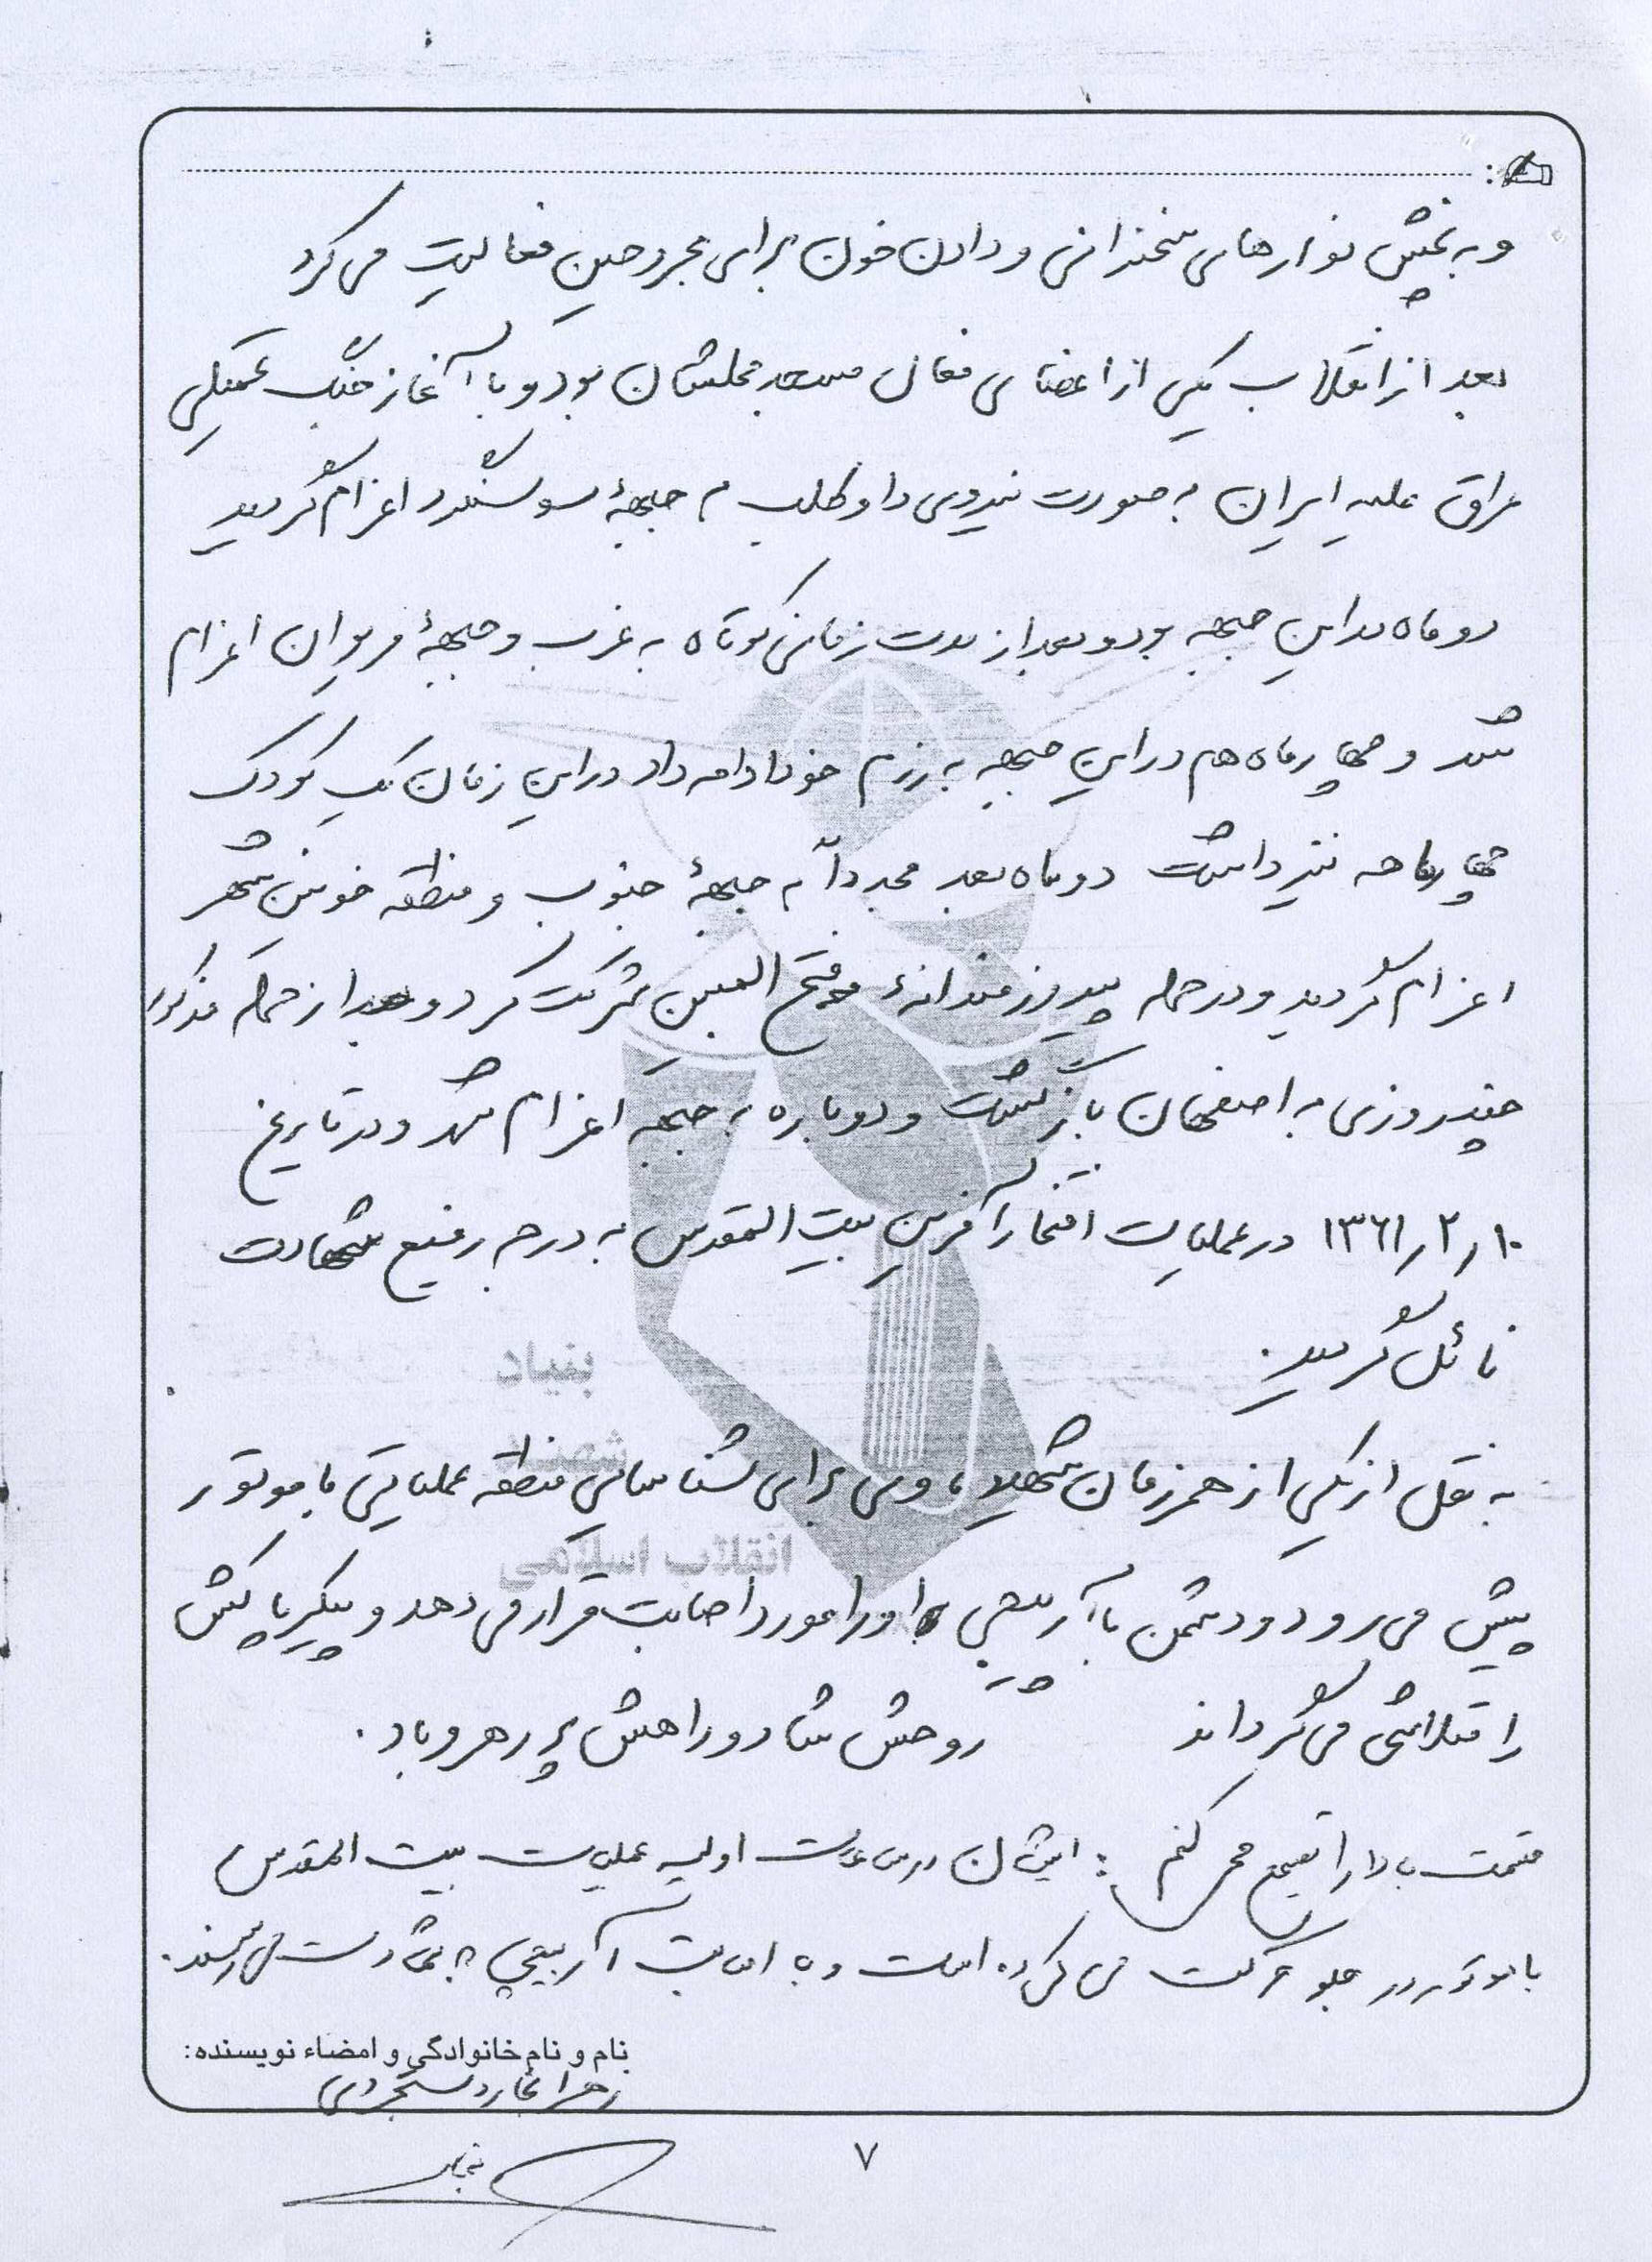 و به پخش نوارهای سخنرانی و دادن خون برای مجروحین فعالیت می کرد
بعد از انقلاب یکی از اعضای فعال مسجد محلشان بود و با آغاز جنگ تحمیلی
عراق علیه ایران به صورت نیروی داوطلب به جبههٔ سوسنگرد اعزام گردید
دو ماه در این جبهه بود و بعد از مدت زمانی کوتاه به غرب و جبههٔ مریوان اعزام
شد و چهار ماه هم در این جبهه به رزم خود ادامه داد در این زمان یک کودک
چهار ماهه نیز داشت دو ماه بعد مجدداً به جبههٔ جنوب و منطقه خونین شهر
اعزام گردید و در حمله پیروزمندانهٔ فتح المبین شرکت کرد و بعد از حمله مذکور
چند روزی به اصفهان بازگشت و دوباره به جبهه اعزام شد و در تاریخ
۱۳۶۱/۲/۱۰ در عملیات افتخارآفرین بیت المقدس به درجه رفیع شهادت
نائل گردید.
به نقل از یکی از همرزمان شهید، وی برای شناسایی منطقه عملیاتی با موتور
پیش می رود و دشمن با آرپیجی او را مورد اصابت قرار می دهد و پیکر پاکش
را متلاشی می گرداند روحش شاد و راهش پر رهرو باد.
قسمت بالا را تصحیح می کنم: ایشان در ساعات اولیه عملیات بیت المقدس
با موتور در جلو حرکت می کرده است و با اصابت آرپیجی به شهادت می رسند.
نام و نام خانوادگی و امضاء نویسنده:
زهرا نجار دستجردی
نجار
۷
بنیاد
شهید
انقلاب اسلامی